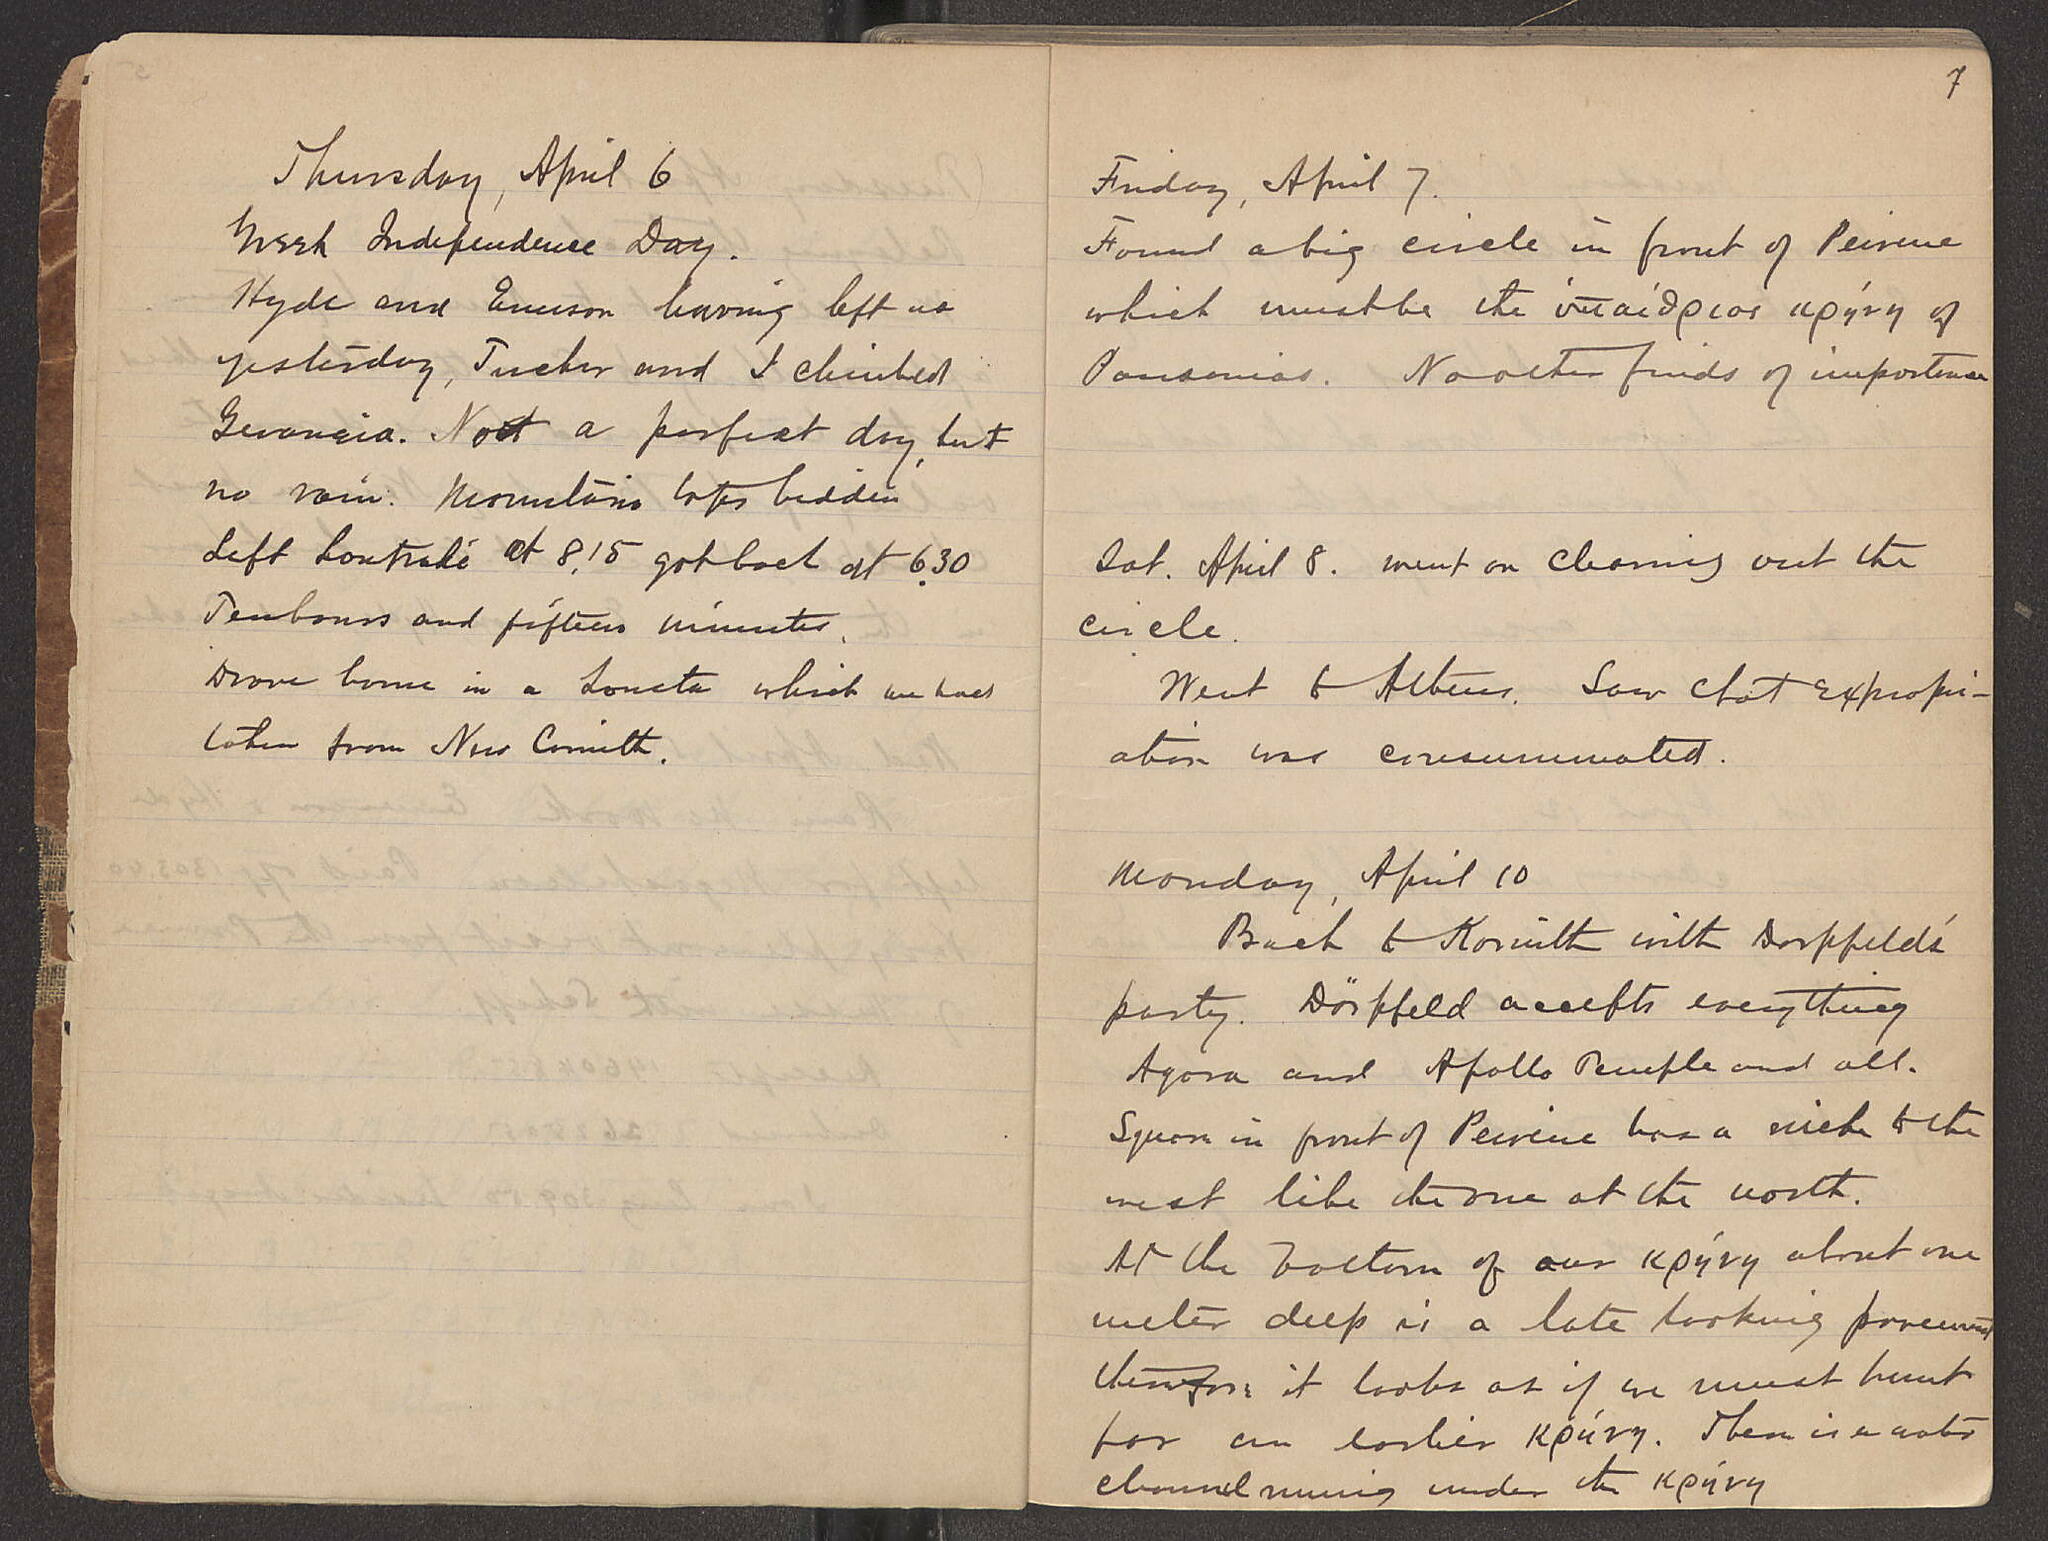 Thursday, April 6
Greek Independence Day.
Hyde and Emerson having left us
yesterday, Tucker and I climbed
Geraneia. Not a perfect day, but
no rain. Mountain tops hidden
Left Loutraki at 8.15 got back at 6.30
Ten hours and fifteen minutes.
Drove home in a Sousta which we had
taken from New Corinth.
7
Friday, April 7.
Found a big circle in front of Peirene
which must be the ὑπαίθριος κρήνη of
Pausanias. No other finds of importance
Sat. April 8. went on cleaning out the
circle.
Went to Athens. Saw that expropri-
ation was consummated.
Monday, April 10
Back to Korinth with Dorpfeld's
party. Dörpfeld accepts everything
Agora and Apollo Temple and all.
Square in front of Peirene has a niche to the
west like the one at the north.
At the bottom of our κρήνη about one
meter deep is a late looking pavement
therefore it looks as if we must hunt
for an earlier κρήνη. There is a water
channel running under the κρήνη